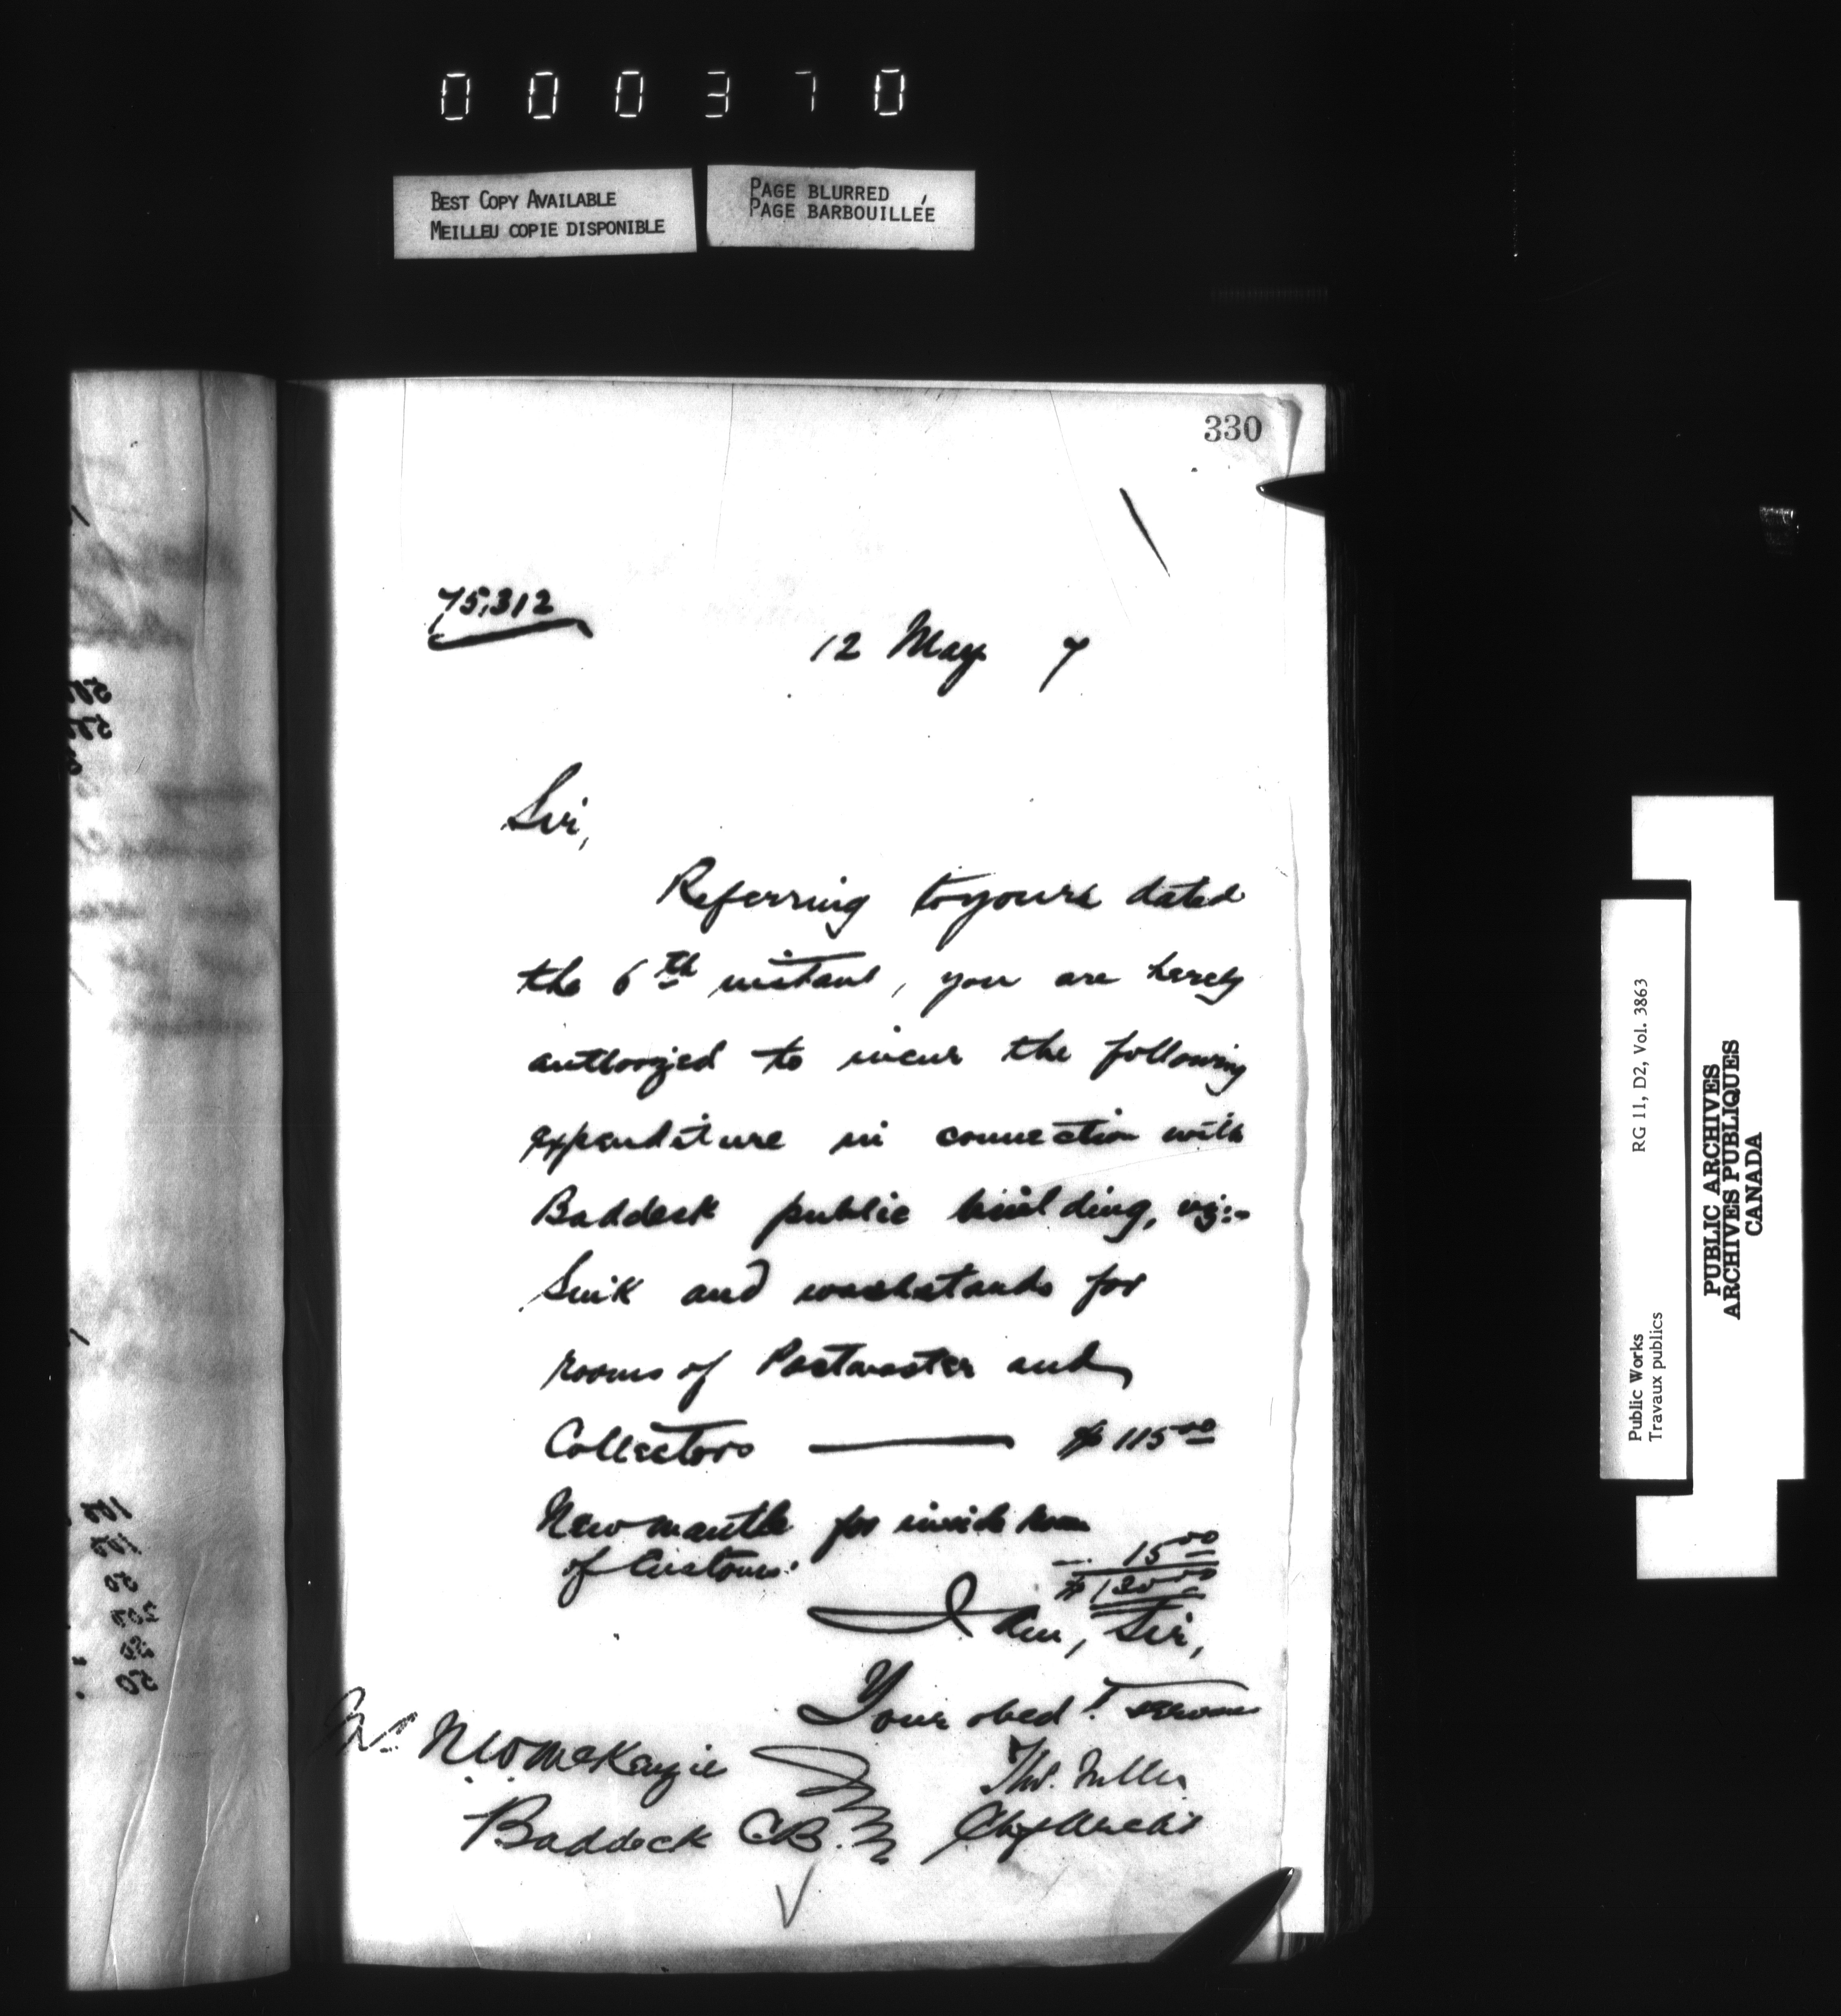 000370
BEST COPY AVAILABLE
MEILLEU COPIE DISPONIBLE
PAGE BLURRED
PAGE BARBOUILLÉE
330
75,312
12 May 7
Sir,
Referring to yours dated
the 6th instant, you are hereby
authorized to incur the following
expenditure in connection with
Baddeck public building, viz:-
Sink and washstands for
rooms of Postmaster and
Collectors — $115.00
New mantle for inside room
of Customs. 15.00
$130.00
I am, Sir,
Your obedt. servant
Thos. Fuller
Chf Archt
N W McKenzie
Baddeck C.B.
Public Works
Travaux publics
RG 11, D2, Vol. 3863
PUBLIC ARCHIVES
ARCHIVES PUBLIQUES
CANADA